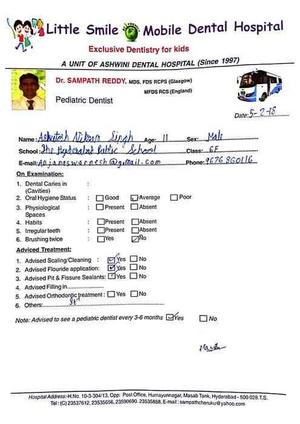 Little Smile Mobile Dental Hospital
Exclusive Dentistry for kids
A UNIT OF ASHWINI DENTAL HOSPITAL (Since 1997)
Dr. SAMPATH REDDY, MDS, FDS RCPS (Glasgow)
MFDS RCS (England)
Pediatric Dentist
Date: 5-2-18
Name: Singh Age: 11 Sex: Male
School: The Hyderabad Public School Class: 6F
E-mail: @gmail.com Phone: 9676860116
On Examination:
1. Dental Caries in (Cavities) :
2. Oral Hygiene Status : Good Average Poor
3. Physiological Spaces : Present Absent
4. Habits : Present Absent
5. Irregular teeth : Present Absent
6. Brushing twice : Yes No
Adviced Treatment:
1. Advised Scaling/Cleaning : Yes No
2. Advised Flouride application: Yes No
3. Advised Pit & Fissure Sealants: Yes No
4. Advised Filling in
5. Advised Orthodontic treatment : Yes No
6. Others:
Note: Advised to see a pediatric dentist every 3-6 months Yes No
Hospital Address: H.No. 10-3-304/13, Opp. Post Office, Humayunnagar, Masab Tank, Hyderabad - 500 028 T.S.
Tel: (C) 23537612, 23535656, 23590690, 23535858. E-mail : sampathcheruku@yahoo.com